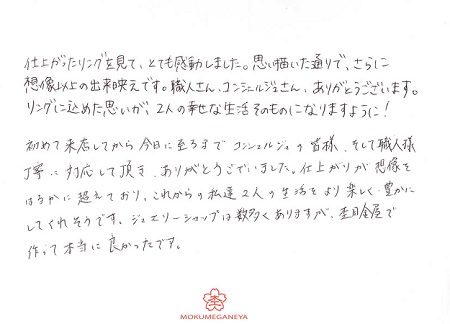 仕上がったリングを見て、とても感動しました。思い描いた通りで、さらに
想像以上の出来映えです。職人さん、コンシェルジュさん、ありがとうございます。
リングに込めた思いが、2人の幸せな生活そのものになりますように!
初めて来店してから今日に至るまで コンシェルジュの皆様、そして職人様
丁寧に対応して頂き、ありがとうございました。仕上がりが想像を
はるかに超えており、これからの私達2人の生活をより楽しく豊かに
してくれそうです。ジュエリーショップは数多くありますが、杢目金屋で
作って本当に良かったです。
MOKUMEGANEYA